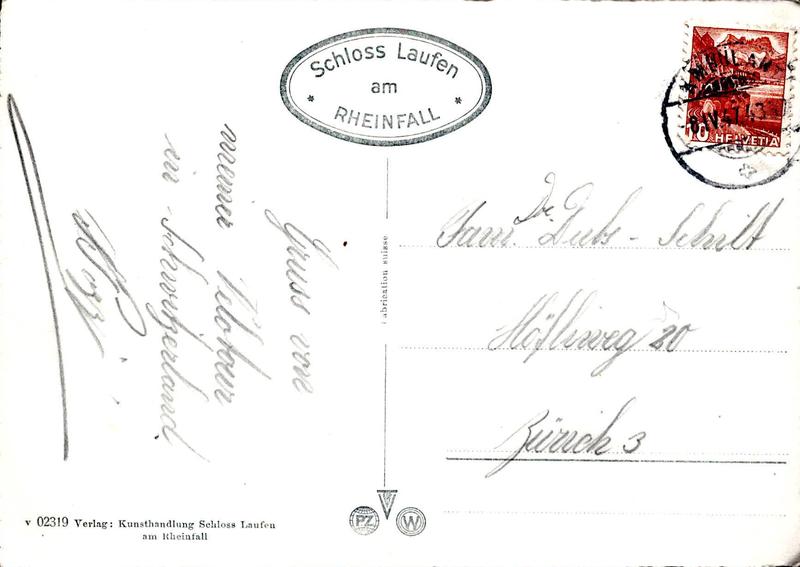 Schloss Laufen
am
* RHEINFALL *
8.IV.47
10 HELVETIA
Gruss von
meiner Velotour
in Schweizerland
Fam. Dr. Dubs - Schilt
Höfliweg 20
Zürich 3
Fabrication suisse
v 02319 Verlag: Kunsthandlung Schloss Laufen
am Rheinfall
PZ
W